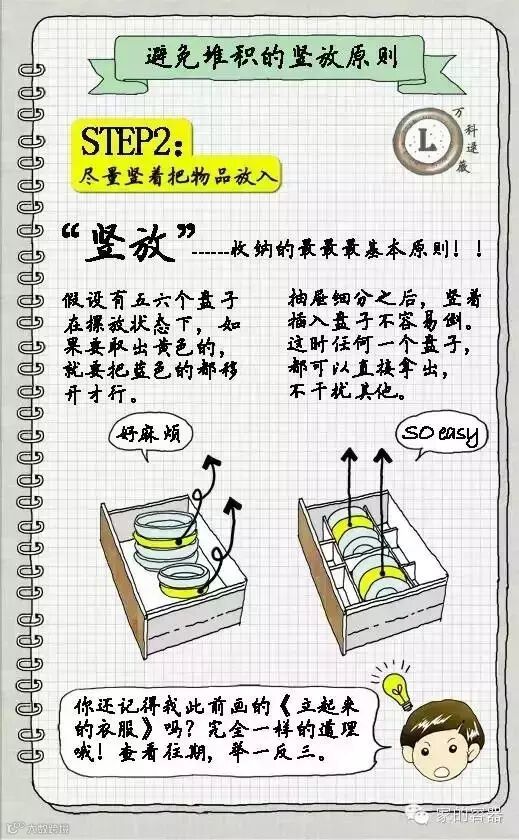 避免堆积的竖放原则
STEP2:
尽量竖着把物品放入
万科逯薇
L
“竖放”......收纳的最最最基本原则!!
假设有五六个盘子
在摞放状态下,如
果要取出黄色的,
就要把蓝色的都移
开才行。
抽屉细分之后,竖着
插入盘子不容易倒。
这时任何一个盘子,
都可以直接拿出,
不干扰其他。
好麻烦
SO easy
你还记得我此前画的《立起来
的衣服》吗?完全一样的道理
哦!查看往期,举一反三。
家的容器
大数跨境